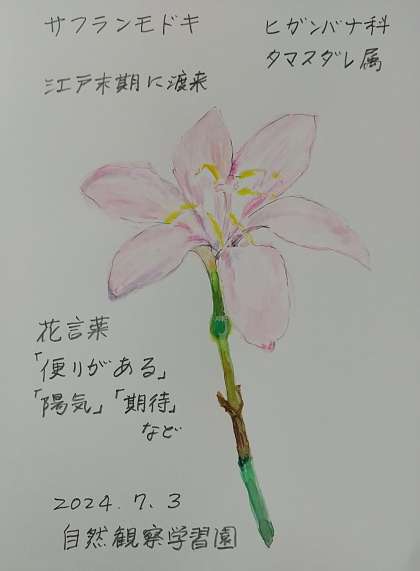 サフランモドキ
ヒガンバナ科
タマスダレ属
江戸末期に渡来
花言葉
「便りがある」
「陽気」「期待」
など
2024.7.3
自然観察学習園